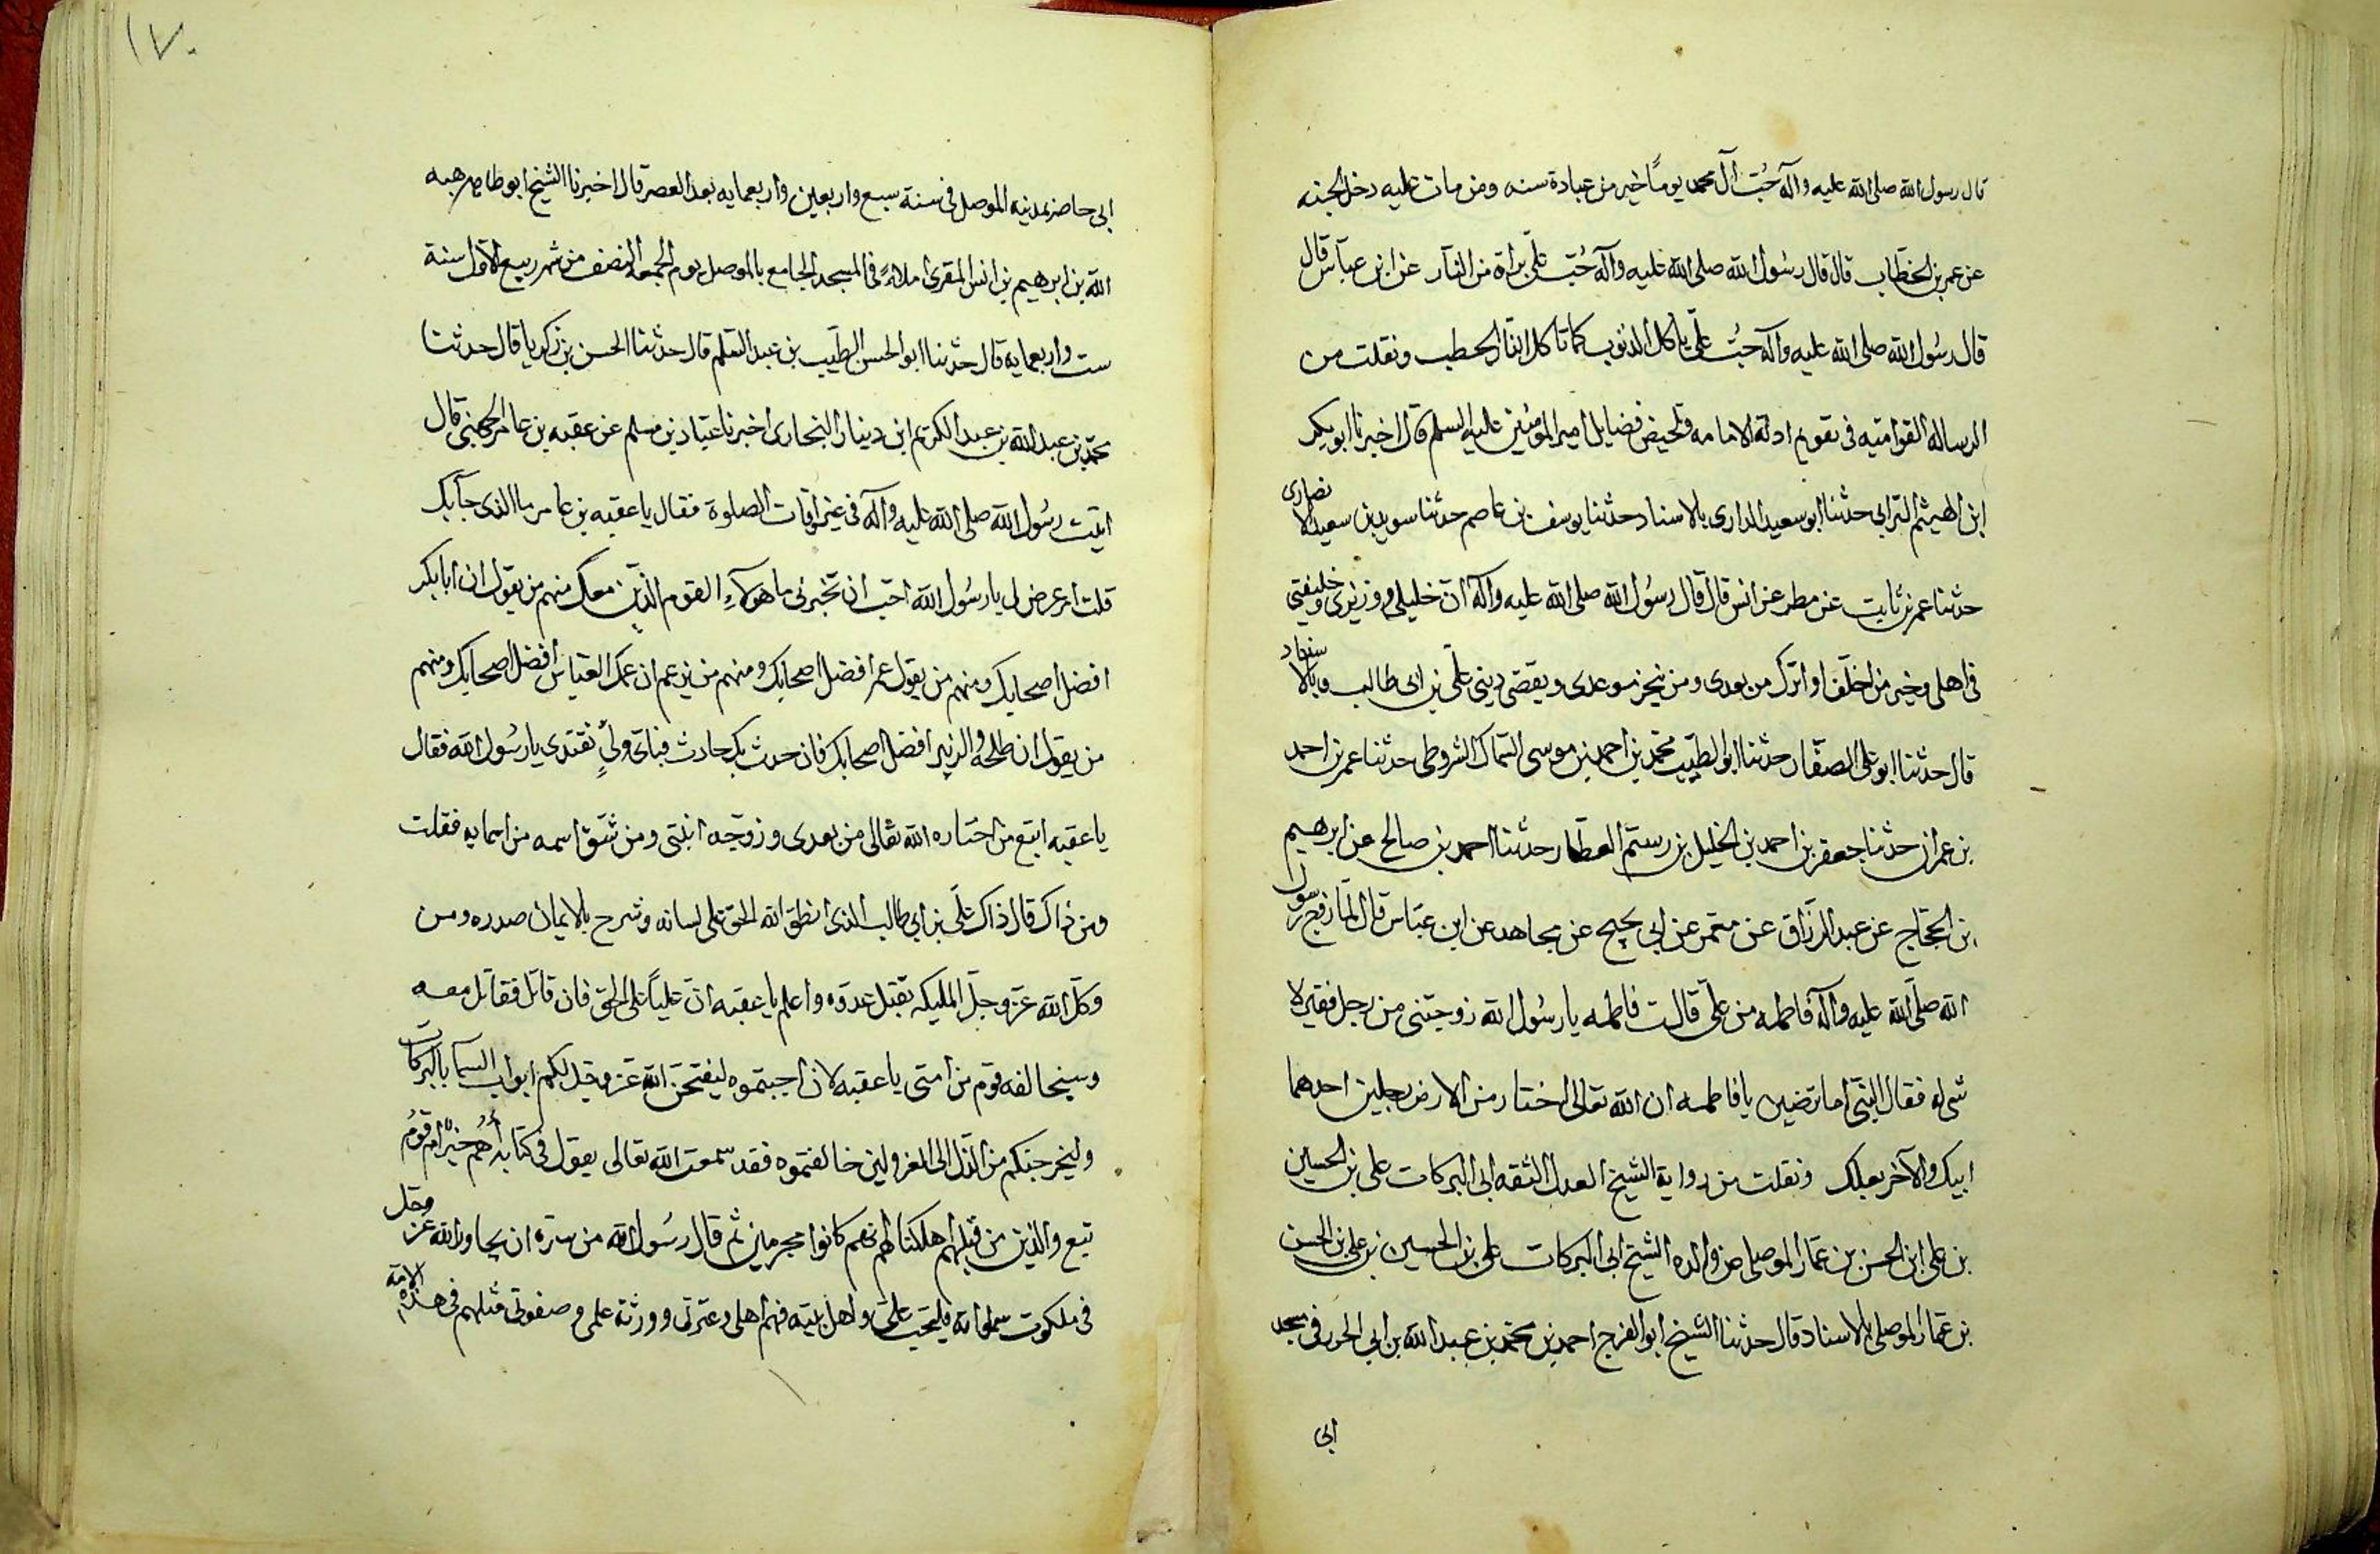 قال رسول الله صلى الله عليه وآله حُبّ آل محمد يومًا خير من عبادة سنه ومن مات عليه دخل الجنه
عن عمر بن الخطّاب قال قال رسُول الله صلى الله عليه وآله حُبّ علىّ براة من النار عن ابن عباس قال
قال رسُول الله صلى الله عليه وآله حبُّ علىّ ياكل الذنوب كما تاكل النار الحطب ونقلت من
الرساله القواميّه فى تقويم ادلة الامامه وتلخيص فضايل امير المؤمنين عليه السلم قال اخبرنا ابو بكر
ابن الهيثم الترابى حدثنا ابو سعيد الدارى بالاسناد حدثنا يوسف بن عاصم حدثنا سويد بن سعيد الانصارى
حدثنا عمر بن ثابت عن مطر عن انس قال قال رسُول الله صلى الله عليه وآله انّ خليلى ووزيرى وخليفتى
فى اهلى وخير من اخلّف او اترك من بعدى ومن ينجز موعدى ويقضى دينى علىّ بن ابى طالب وبالاسناد
قال حدثنا ابو على الصفّار حدثنا ابو الطيّب محمّد بن احمد بن موسى السّماك الشروطى حدثنا عمر بن احمد
بن عمران حدثنا جعفر بن احمد بن الخليل بن رستم العطّار حدثنا احمد بن صالح عن ابرهيم
بن الحجّاج عن عبد الرزّاق عن معمّر عن ابى نجيح عن مجاهد عن ابن عبّاس قال لمّا زوّج رسول
الله صلّى الله عليه وآله فاطمه من علىّ قالت فاطمه يا رسُول الله زوجتنى من رجل فقير لا
شى له فقال النبّى اما ترضين يا فاطمه ان الله تعالى اختار من الارض رجلين احدهما
ابيك والآخر بعلك ونقلت من رواية الشيخ العدل الثقه ابى البركات على بن الحسين
بن على ابن الحسن بن عمّار الموصلى عن والده الشيخ ابى البركات على بن الحسين بن على بن الحسن
بن عمّار الموصلى بالاسناد قال حدثنا الشيخ ابو الفرج احمد بن محمّد بن عبيد الله بن ابى الحرر فى مسجد
ابى
١٧٠
ابى حاضر بمدينه الموصل فى سنة سبع واربعين واربعمايه بعد العصر قال اخبرنا الشيخ ابو طاهر هبه
الله بن ابرهيم بن انس المقرى املاءً فى المسجد الجامع بالموصل يوم الجمعة النصف من شهر ربيع الاول سنة
ست واربعمايه قال حدثنا ابو الحسن الطيّب بن عبد السّلم قال حدثنا الحسن بن زكريا قال حدثنا
محمّد بن عبد الله بن عبد الكريم ابن دينار البخارى اخبرنا عباد بن مسلم عن عقبه بن عامر الجهنى قال
اتيت رسُول الله صلى الله عليه وآله فى غير اوقات الصلوة فقال يا عقبه بن عامر ما الذى جآبك
قلت امر عرض لى يا رسُول الله احبّ ان تخبرنى ما هولآء القوم الّذين معك منهم من يقول ان ابا بكر
افضل اصحابك ومنهم من يقول عمر افضل اصحابك ومنهم من يزعم ان عمك العباس افضل اصحابك ومنهم
من يقول ان طلحه والزبير افضل اصحابك فان حدث بك حادث فباىّ ولىٍ نقتدى يا رسُول الله فقال
يا عقبه اتبع من اختاره الله تعالى من بعدى وزوّجه ابنتى ومن شقّ اسمه من اسمايه فقلت
ومن ذاك قال ذاك علىّ بن ابي طالب الذى انطق الله الحق على لسانه وشرح بالايمان صدره ومن
وكّل الله عزّ وجلّ المليكه بقتل عدوّه واعلم يا عقبه انّ عليًا على الحق فان قاتل فقاتل معه
وسيخالفه قوم من امتى يا عقبه لان اجبتموه ليفتحن الله عزّ وجلّ لكم ابواب السما بالبركات
وليخرجنكم من الذل الى العز ولين خالفتموه فقد سمعت الله تعالى يقول فى كتابه أهُم خيرٌ ام قومُ
تبع والذين من قبلهم اهلكناهم انهم كانوا مجرمين ثم قال رسُول الله من سرّه ان يجاور الله عزّ وجل
فى ملكوت سمواته فليحب علىّ واهل بيته فهم اهلى وعترتى وورثة علمى وصفوتى مثلهم فى هذه الامّه